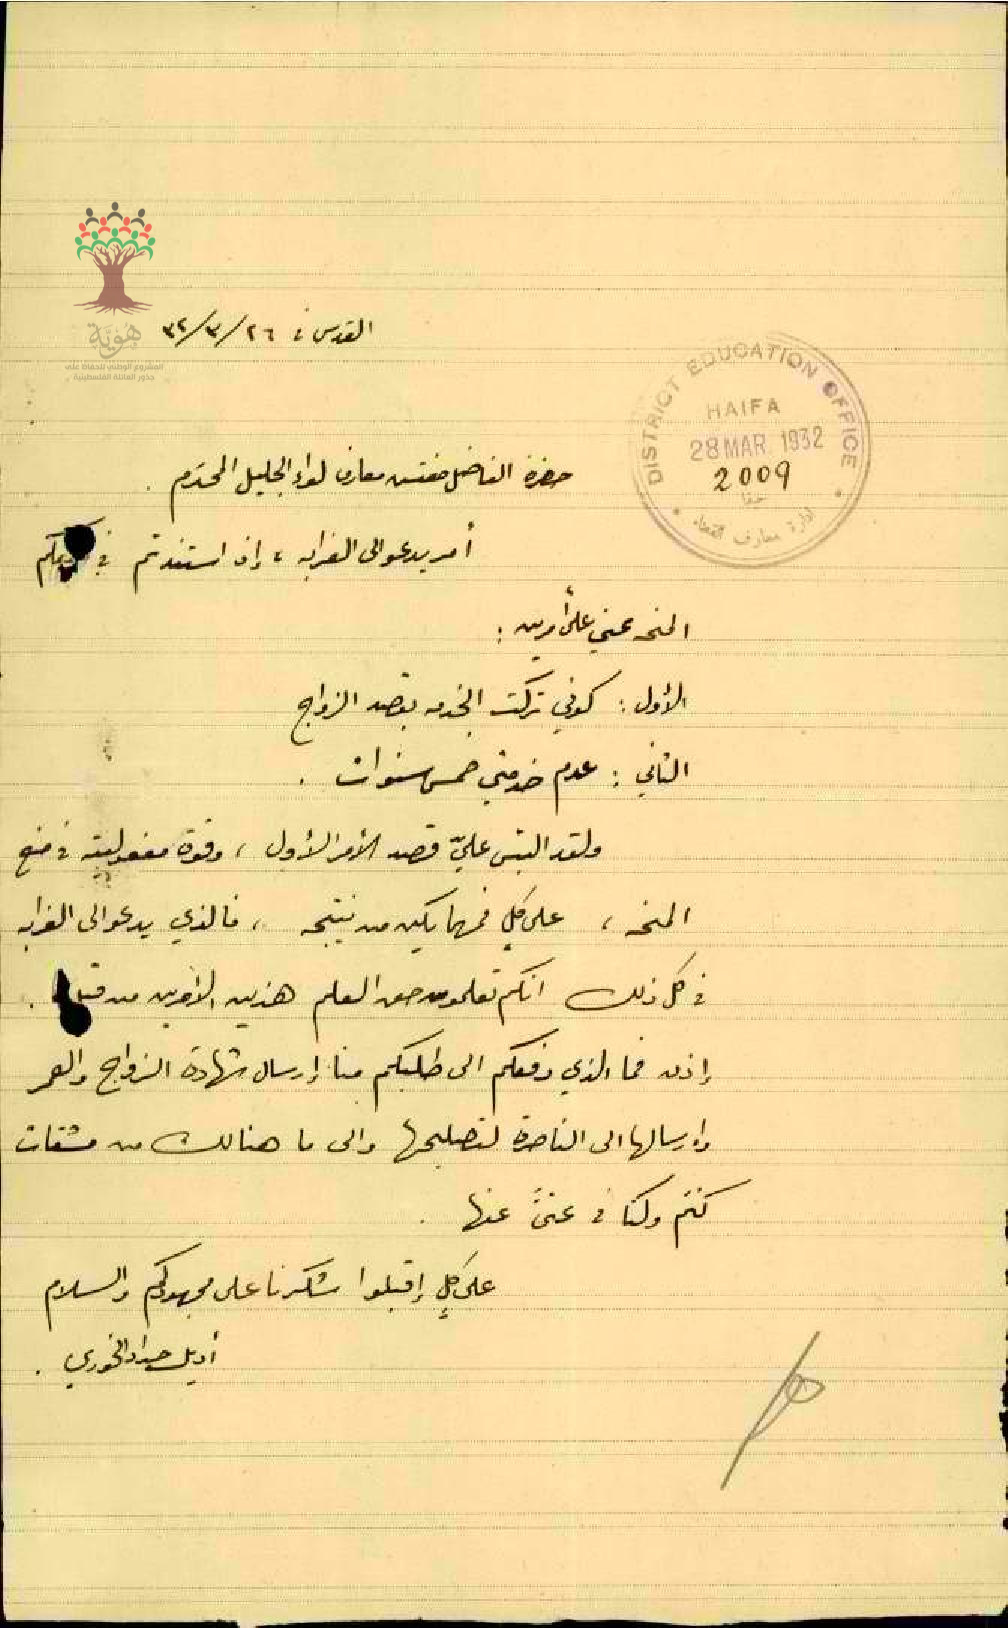 هوية
المشروع الوطني للحفاظ على
جذور العائلة الفلسطينية
القدس في ٢٦/٣/٣٢
DISTRICT EDUCATION OFFICE
HAIFA
28 MAR 1932
2009
حيفا
ادارة معارف القضاء
حضرة الفاضل مفتش معارف لواء الجليل المحترم .
أمر يدعو الى الغرابه ، إذ استندتم في
المنحه عني على أمرين :
الأول : كوني تركت الخدمه بقصد الزواج
الثاني : عدم خدمتي خمس سنوات .
ولقد التبس عليّ قصد الأمر الأول ، وقوة مفعوليته في منع
المنحه ، على كلٍ فمهما يكن من نتيجه ، فالذي يدعو الى الغرابه
في كل ذلك انكم تعلمون حق العلم هذين الأمرين من قبل .
إذن فما الذي دفعكم الى طلبكم منا إرسال شهادة الزواج والعمر
وارسالها الى الناصرة لتصليحها والى ما هنالك من مشقات
كنتم وكنا في غنىً عنها .
على كلٍ إقبلوا شكرنا على مجهودكم والسلام
أديل حداد الخوري .